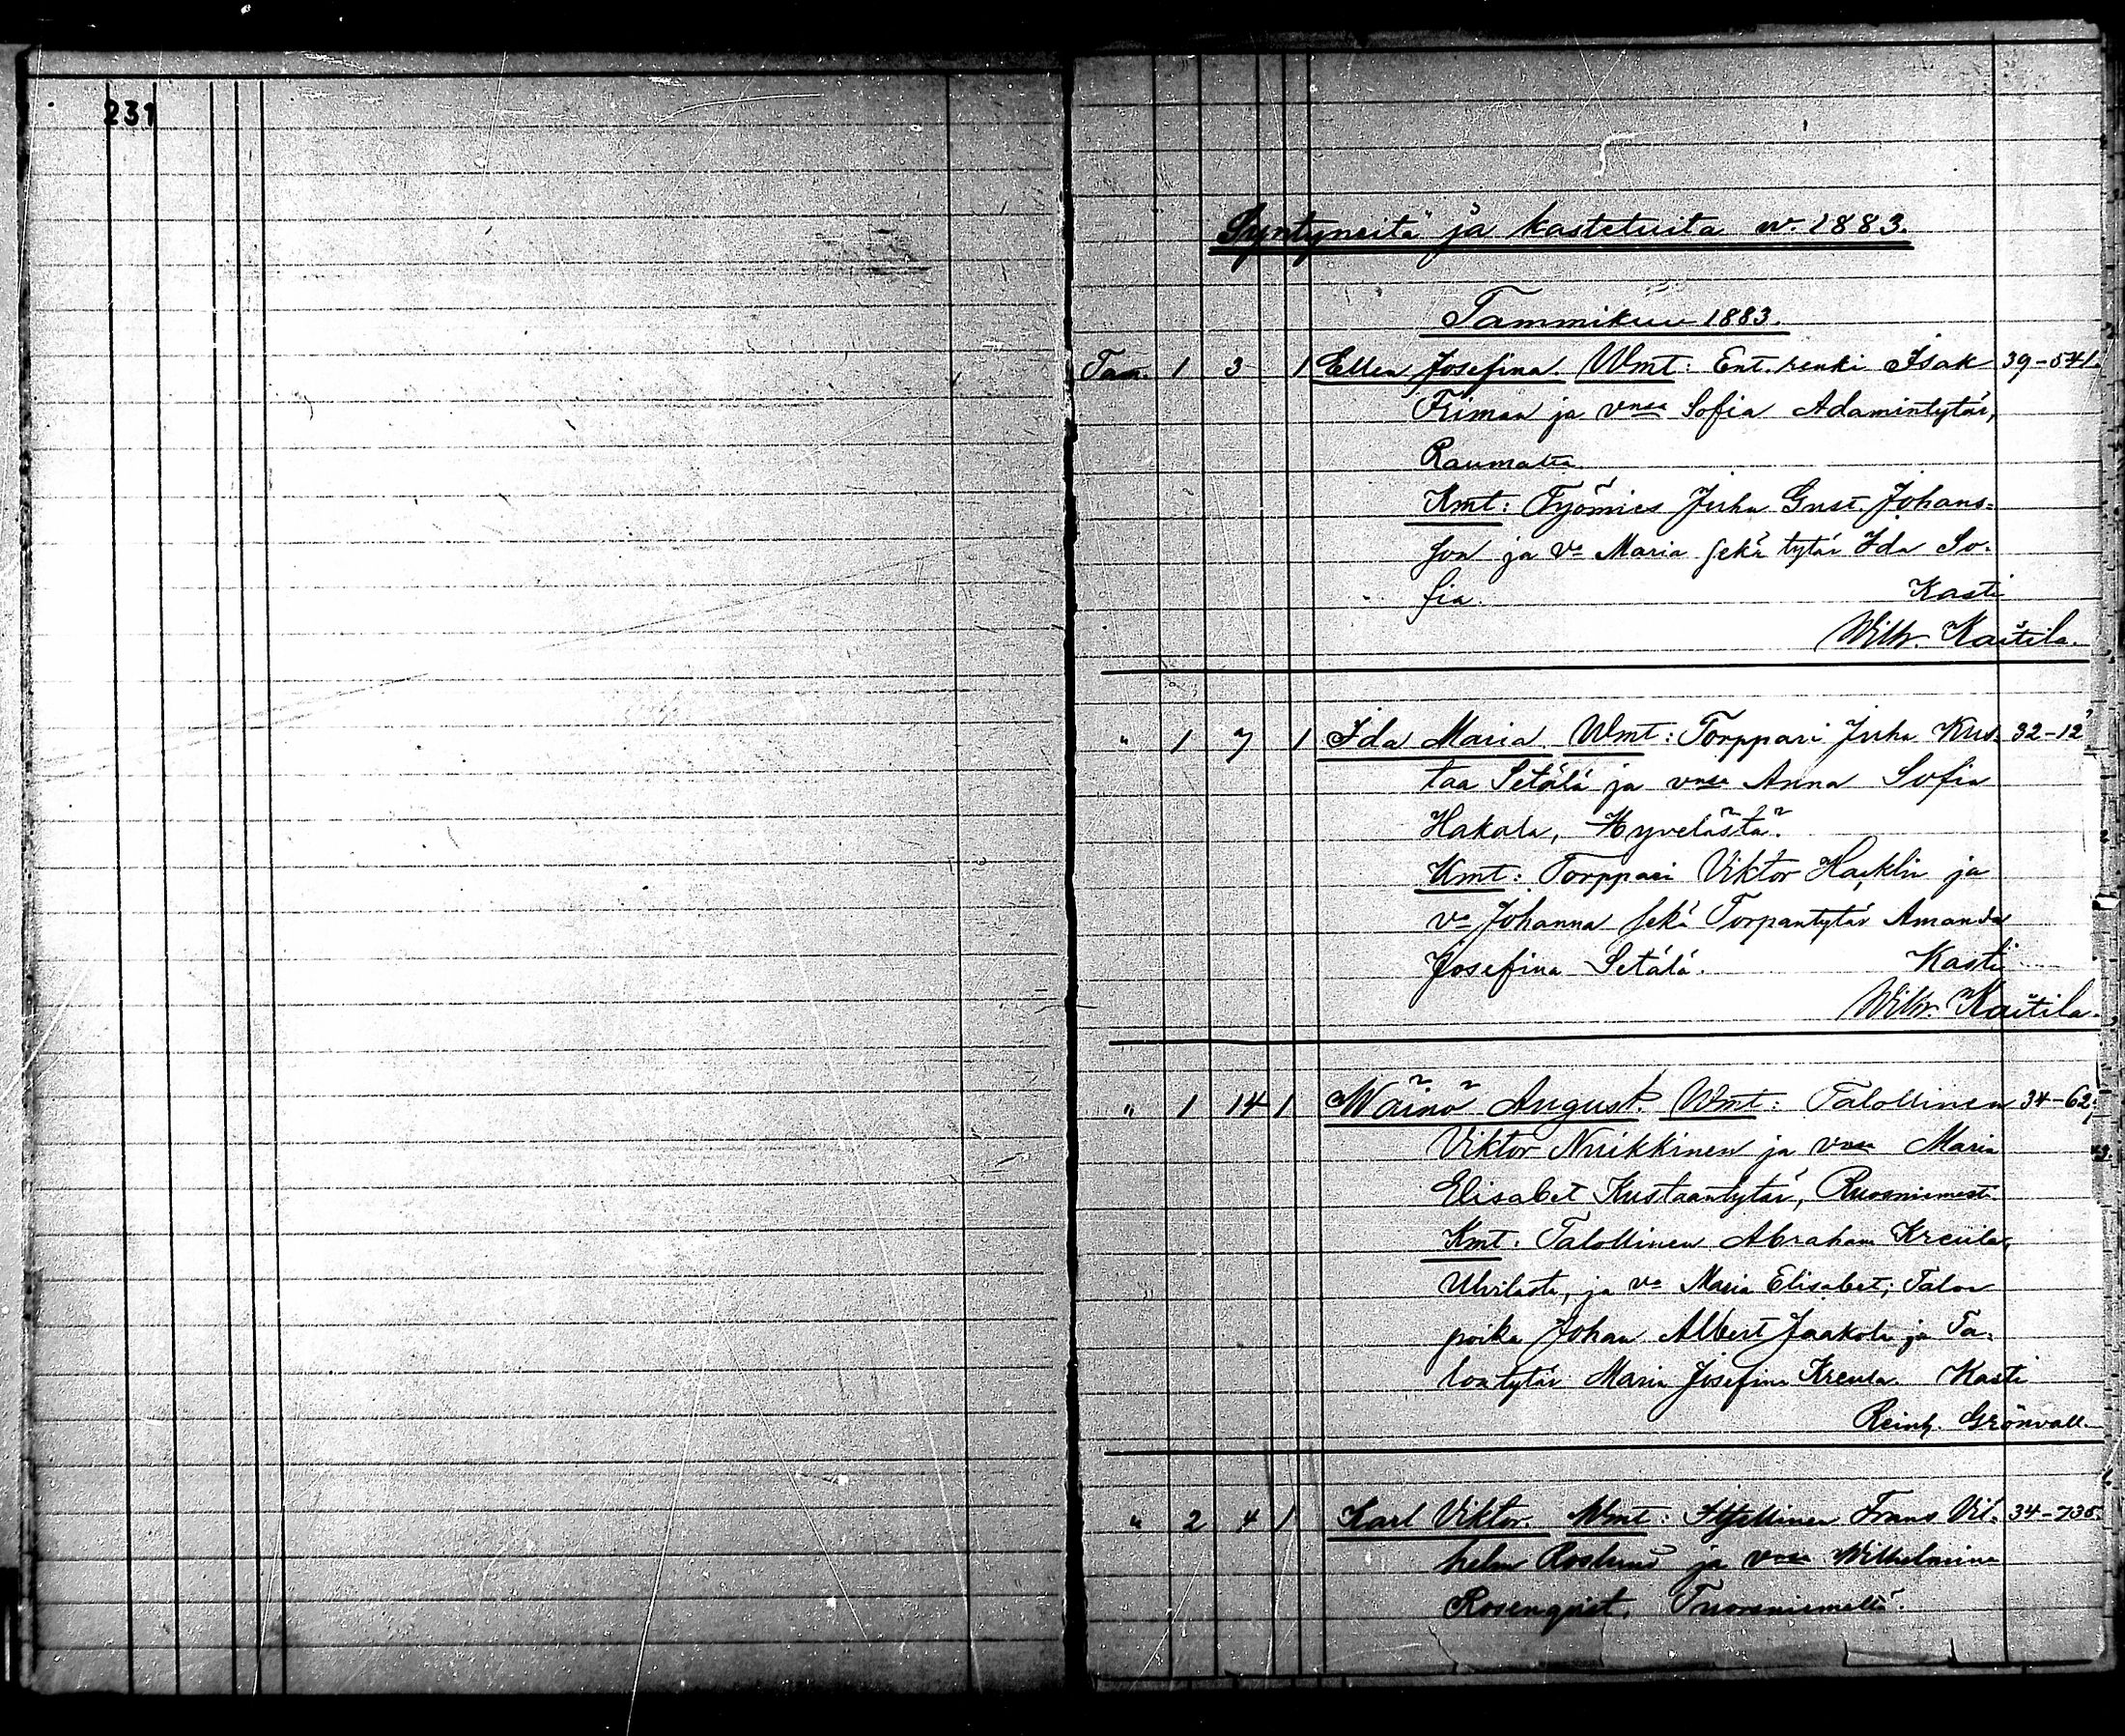 231
Syntyneitä ja kastetuita w. 1883.
Tammikuu 1883.
Tam. 1 3 1 Ellen Josefina. Wmt: Ent. renki Isak 39-541.
Friman ja vnsa Sofia Adamintytär,
Raumalta
Kmt: Työmies Juha Gust. Johans=
son ja va Maria sekä tytär Ida So-
fia. Kasti
Wilh. Kaitila.
" 1 7 1 Ida Maria. Wmt: Torppari Juha Kus- 32-12
taa Setälä ja vnsa Anna Sofia
Hakala, Hyvelästä.
Kmt: Torppari Viktor Hacklin ja
va Johanna sekä Torpantytär Amanda
Josefina Setälä. Kasti
Wilh. Kaitila.
" 1 14 1 Wäinö August. Wmt: Talollinen 34-62.
Viktor Nuikkinen ja vnsa Maria
Elisabet Kustaantytär, Ruosniemestä
Kmt: Talollinen Abraham Kreula,
Ulvilasta, ja va Maria Elisabet; Talon
poika Johan Albert Jaakola ja Ta-
lontytär Maria Josefina Kreula. Kasti
Reinh. Grönvall.
" 2 4 1 Karl Viktor. Wmt: Itsellinen Frans Vil- 34-735.
helm Roslund ja vnsa Wilhelmina
Rosenqvist,